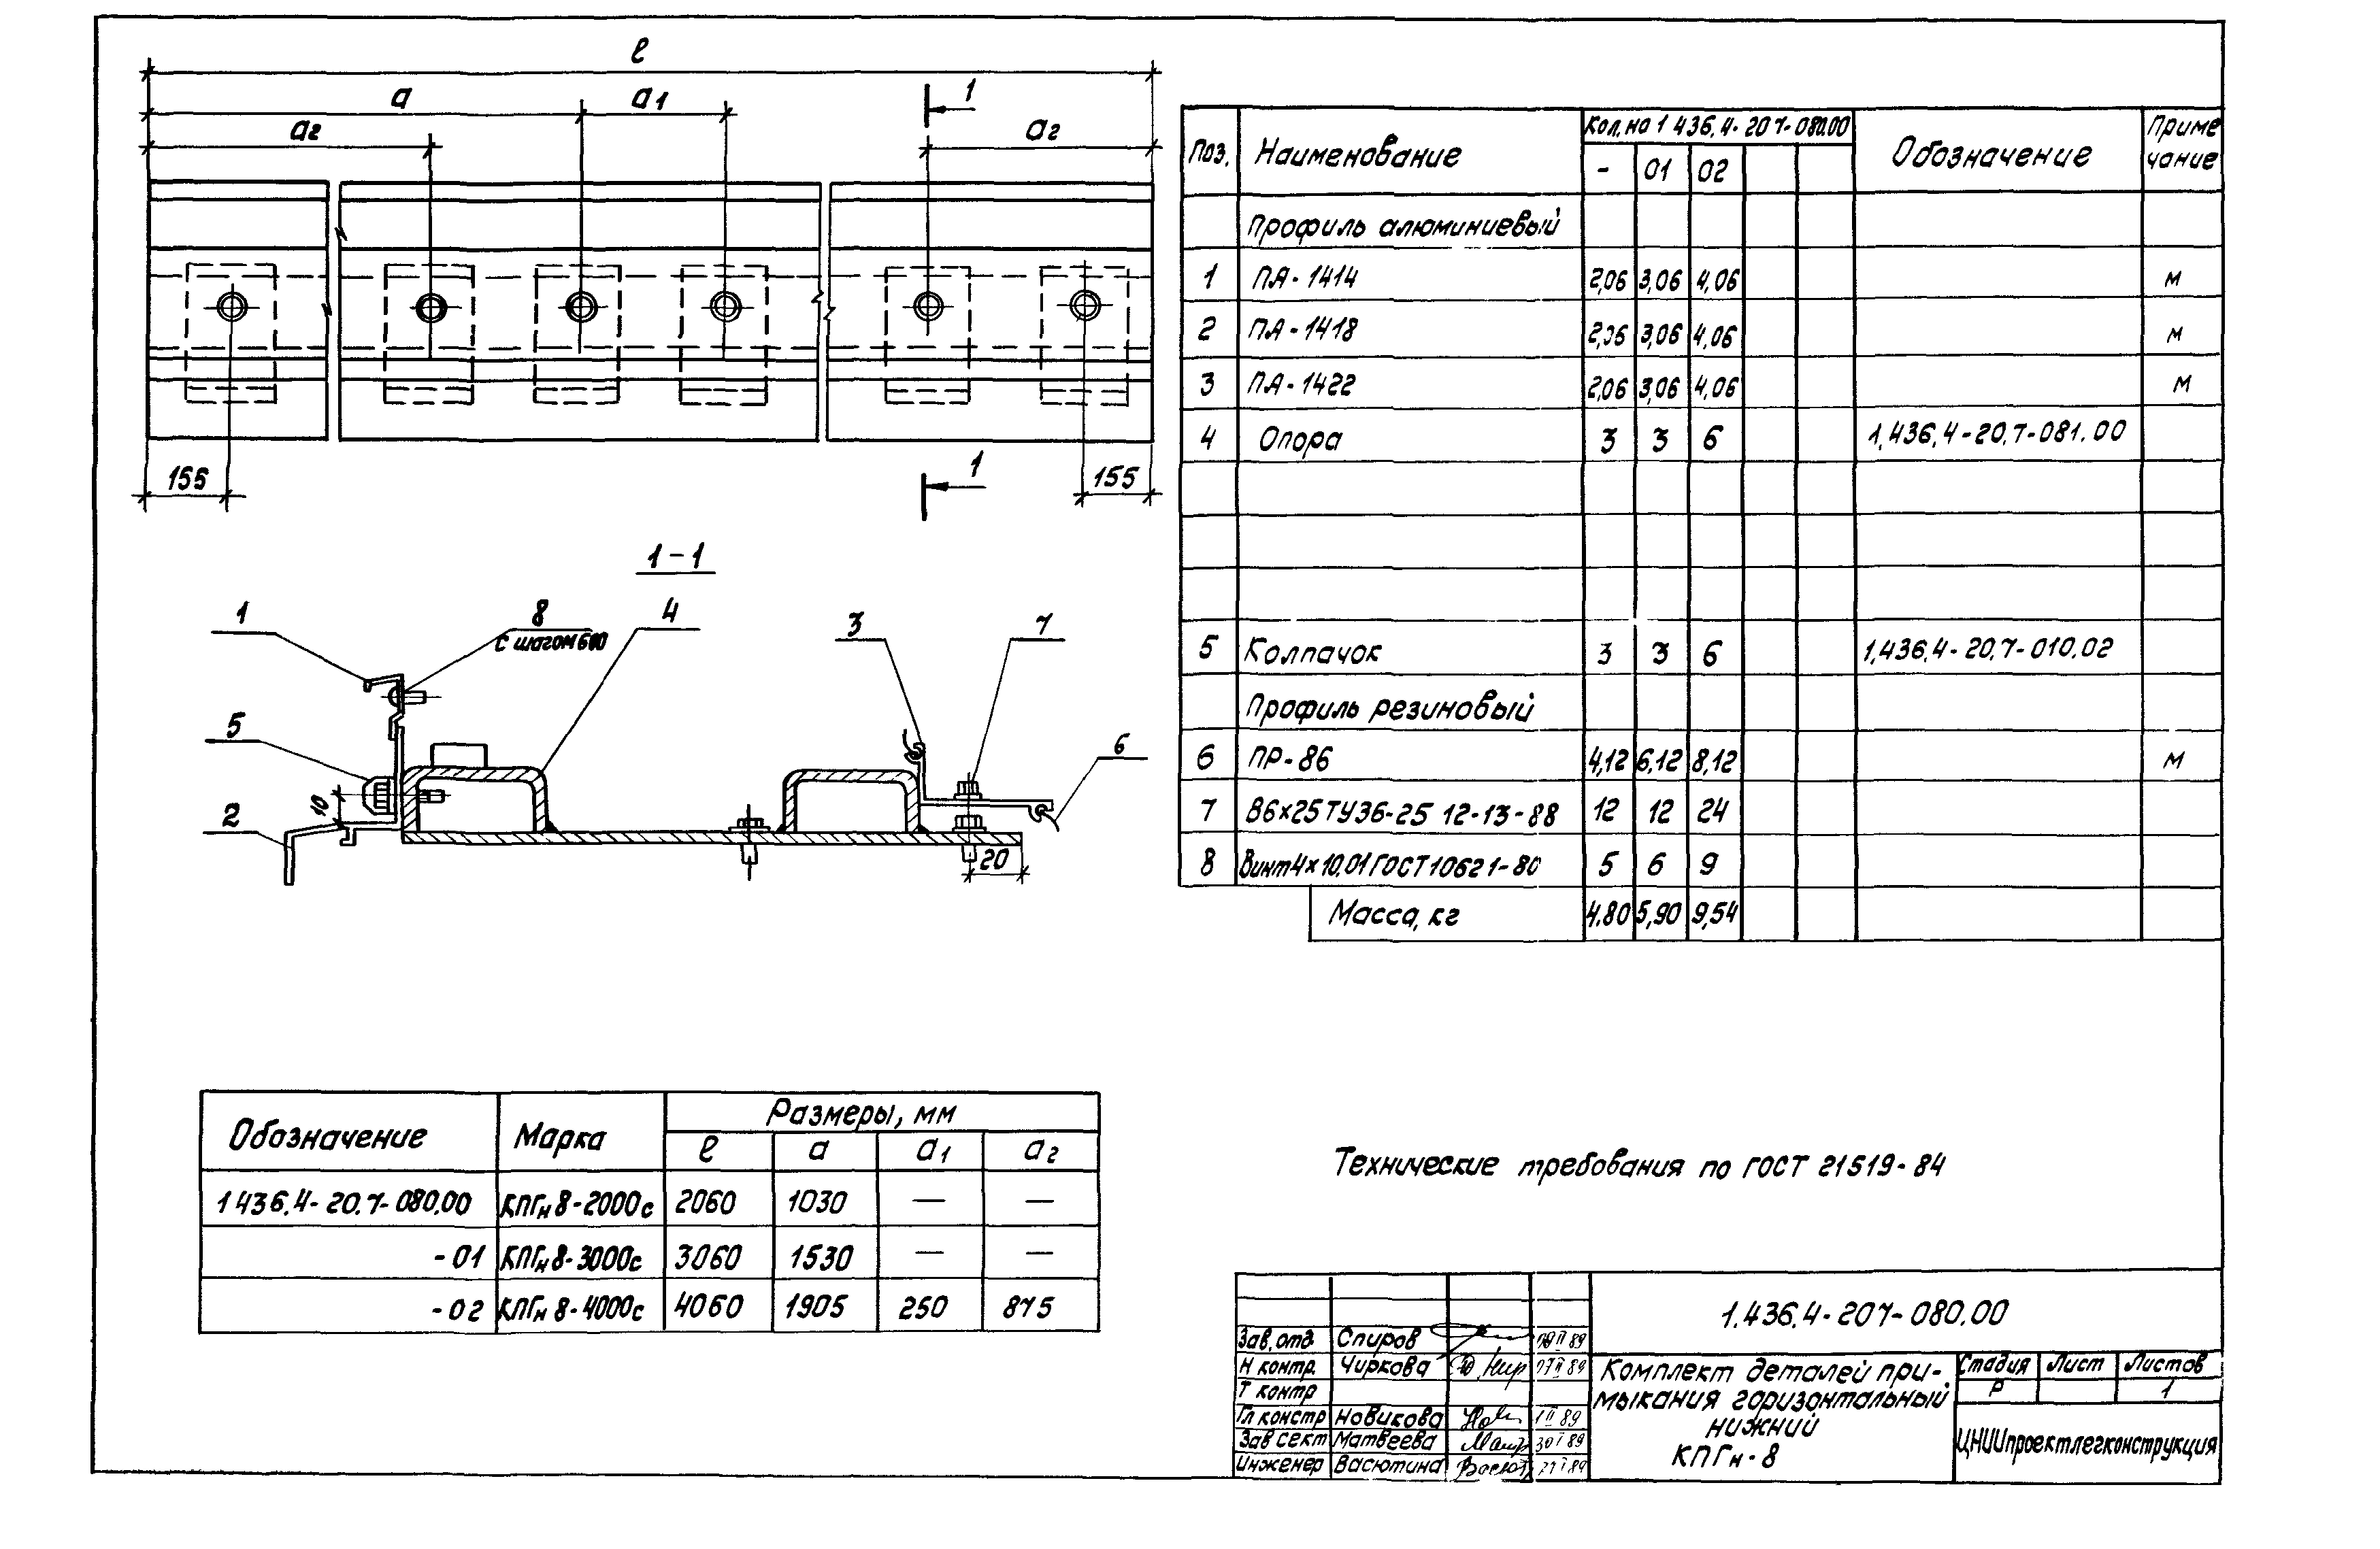 ℓ
а а1 1
а2 а2
155 1 155
1-1
1 8 4 3 7
с шагом 600
5 6
10
2
20
Поз. Наименование Кол. на 1 436.4-20 7-080.00 Обозначение Приме
чание
- 01 02
Профиль алюминиевый
1 ПА-1414 2,06 3,06 4,06 м
2 ПА-1418 2,06 3,06 4,06 м
3 ПА-1422 2,06 3,06 4,06 м
4 Опора 3 3 6 1.436.4-20.7-081.00
5 Колпачок 3 3 6 1.436.4-20.7-010.02
Профиль резиновый
6 ПР-86 4,12 6,12 8,12 м
7 В6×25 ТУ36-25 12-13-88 12 12 24
8 Винт 4×10.01 ГОСТ 10621-80 5 6 9
Масса, кг 4.80 5,90 9,54
Обозначение Марка Размеры, мм
ℓ а а1 а2
1 436.4-20.7-080.00 КПГн 8-2000с 2060 1030 — —
-01 КПГн 8-3000с 3060 1530 — —
-02 КПГн 8-4000с 4060 1905 250 875
Технические требования по ГОСТ 21519-84
1.436.4-20 7-080.00
Зав. отд. Спиров
Н контр. Чиркова
Т контр
Гл констр Новикова
Зав сект Матвеева
Инженер Васютина
Комплект деталей при-
мыкания горизонтальный
нижний
КПГн-8
Стадия Лист Листов
Р 1
ЦНИИпроектлегконструкция